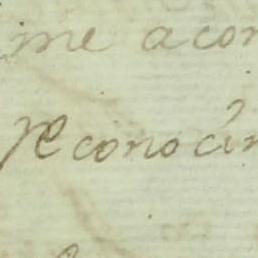 me acon
Reconocin